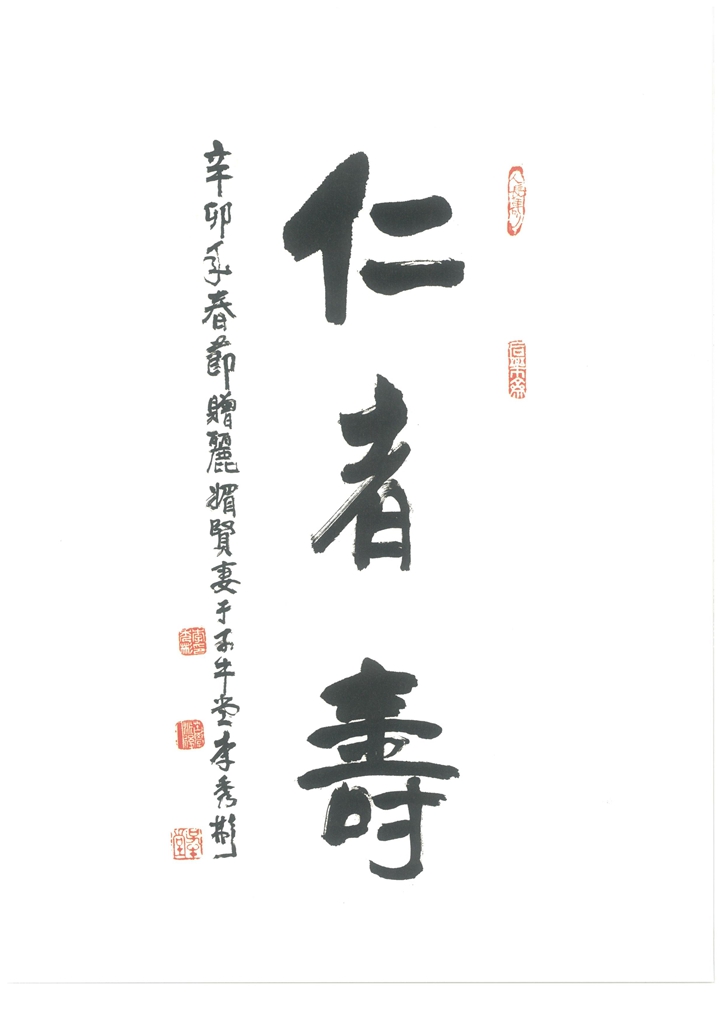 仁者壽
辛卯年春節贈麗媚賢妻于不牛堂李秀彬